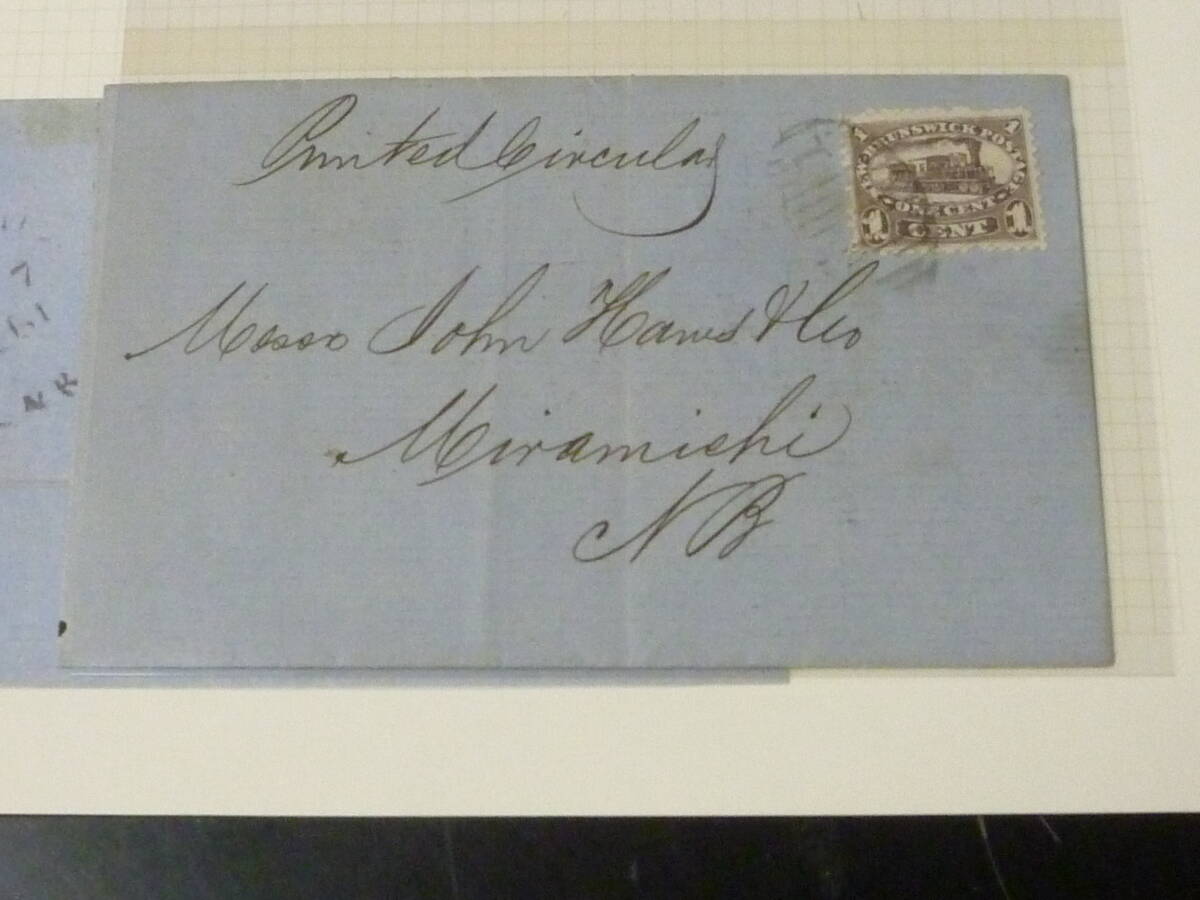 Printed Circular
1 1
NEW BRUNSWICK POSTAGE
ONE CENT
1 CENT 1
Messrs John Haws & Co
Miramichi
N B
7